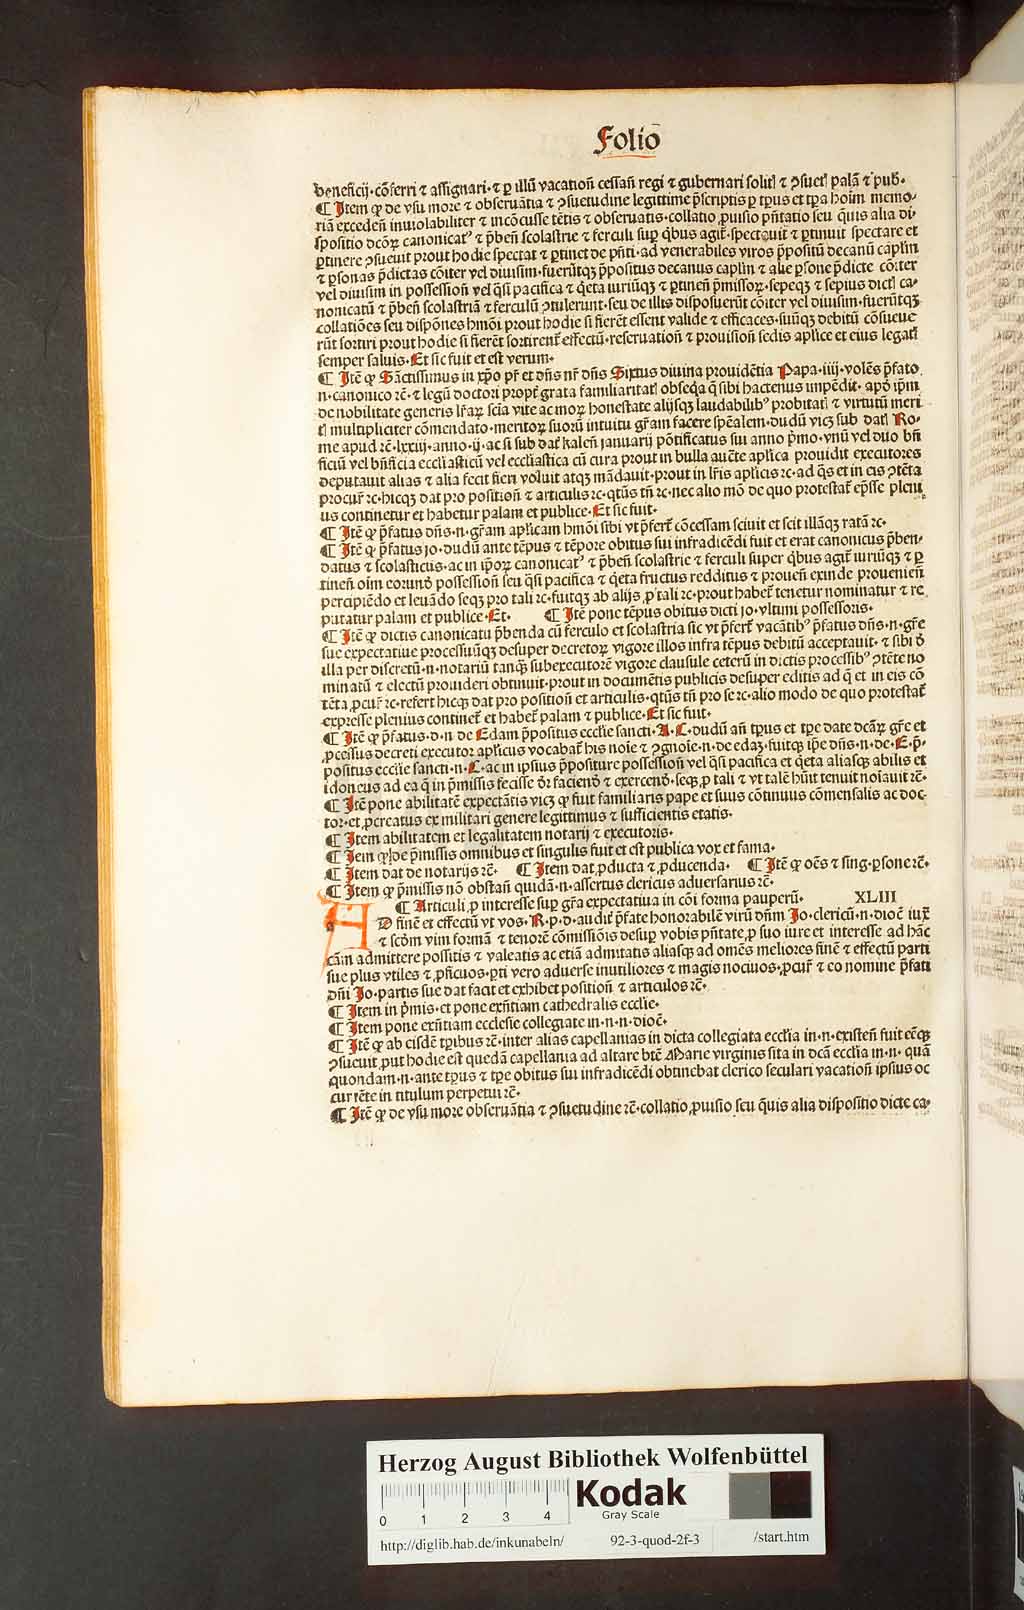 Folio̅
beneficij·cōferri ⁊ assignari·⁊ ꝑ illū vacatioñ cessañ regi ⁊ gubernari solitꝭ ⁊ ꝯsuetꝭ palā ⁊ pub̄·
¶ Item ꝙ de vsu more ⁊ obseruātia ⁊ ꝯsuetudine legittime p̄scriptis ꝑ tꝑus et tꝑa hoim̄ memo-
riā excedeñ inuiolabiliter ⁊ incōcusse tētis ⁊ obseruatis·collatio ꝓuisio pn̄tatio seu q̄uis alia di-
spositio dcōꝝ canonicatꝰ ⁊ p̄beñ scolastrie ⁊ ferculi suꝑ qͥbus agit̄·spectauit ⁊ ꝑtinuit spectare et
ꝑtinere ꝯsueuit prout hodie spectat ⁊ ꝑtinet de pn̄ti·ad venerabiles viros p̄positū decanū caplīn
⁊ ꝑsonas p̄dictas cōiter vel diuisim·fuerūtqꝫ p̄positus decanus caplīn ⁊ alie ꝑsone p̄dicte cōiter
vel diuisim in possessioñ vel q̄si pacifica ⁊ q̄eta iuriūqꝫ ⁊ ꝑtineñ p̄missoꝝ·sepeqꝫ ⁊ sepius dictꝭ ca-
nonicatū ⁊ p̄beñ scolastriā ⁊ ferculū ꝯtulerunt·seu de illis disposuerūt cōiter vel diuisim·fuerūtqꝫ
collatiōes seu dispōnes hmōi prout hodie si fierēt essent valide ⁊ efficaces·suūqꝫ debitū cōsueue
rūt sortiri prout hodie si fierēt sortirent̄ effectū·reseruatioñ ⁊ prouisioñ sedis aplice et eius legatꝭ
semper saluis·Et sic fuit et est verum·
¶ Itē ꝙ Sāctissimus in xp̄o pr̄ et dn̄s nr̄ dn̄s Sixtus diuina prouidētia Papa·iiij·volēs p̄fato
n·canonico ꝛc̄·⁊ legū doctori propt̄ grata familiaritatꝭ obseq̄a q̄ sibi hactenus impēdit·apđ ip̄m
de nobilitate generis lr̄aꝝ scīa vite ac moꝝ honestate alijsqꝫ laudabilibꝰ probitatꝭ ⁊ virtutū meri
tꝭ multipliciter cōmendato·meritoꝝ suorū intuitu gr̄am facere spēalem·dudū vicꝫ sub datꝭ Ro-
me apud ꝛc̄·lxxiij·anno·ij·ac si sub dat̄ kaleñ januarij pōtificatus sui anno p̄mo·vnū vel duo bn̄
ficiū vel bn̄ficia eccl̄iasticū vel eccl̄iastica cū cura prout in bulla auc̄te aplīca prouidit executores
deputauit alias ⁊ alia fecit fieri voluit atqꝫ mādauit·prout in lr̄is aplīcis ꝛc·ad q̄s et in eis ꝯtēta
procur̄ ꝛc·hicqꝫ dat pro positioñ ⁊ articulis ꝛc·qtūs tn̄ ꝛc·nec alio mō de quo protestat̄ ep̄sse pleni
us continetur et habetur palam et publice·Et sic fuit·
¶ Itē ꝙ p̄fatus dn̄s·n·gr̄am aplīcam hmōi sibi vt p̄fert̄ cōcessam sciuit et scit illāqꝫ ratā ꝛc·
¶ Itē ꝙ p̄fatus jo·dudū ante tēpus ⁊ tēpore obitus sui infradicēdi fuit et erat canonicus p̄ben-
datus ⁊ scolasticus·ac in ip̄oꝝ canonicatꝰ ⁊ p̄beñ scolastrie ⁊ ferculi super qͥbus agit̄ iuriūqꝫ ⁊ ꝑ
tineñ oim̄ eorund̄ possessioñ seu q̄si pacifica ⁊ q̄eta fructus redditus ⁊ proueñ exinde prouenieñ
percipiēdo et leuādo seqꝫ pro tali ꝛc·fuitqꝫ ab alijs ꝓ tali ꝛc·prout habet̄ tenetur nominatur ⁊ re
putatur palam et publice·Et· ¶ Itē pone tēpus obitus dicti jo·vltimi possessoris·
¶ Itē ꝙ dictis canonicatu p̄benda cū ferculo et scolastria sic vt p̄fert̄ vacātibꝰ p̄fatus dn̄s·n·gr̄e
sue expectatiue processuūqꝫ desuper decretoꝝ vigore illos infra tēpus debitū acceptauit·⁊ sibi đ
illa per discretū·n·notariū tanqꝫ subexecutorē vigore clausule ceterū in dictis processibꝰ ꝯtēte no
minatū ⁊ electū prouideri obtinuit·prout in documētis publicis desuper editis ad q̄ et in eis cō
tēta ꝓcur̄ ꝛc·refert hicqꝫ dat pro positioñ et articulis·qtūs tn̄ pro se ꝛc·alio modo de quo protestat̄
expresse plenius continet̄ et habet̄ palam ⁊ publice·Et sic fuit·
¶ Itē ꝙ p̄fatus·d·n·de Edam p̄positus eccl̄ie sancti·A·L·dudū añ tꝑus et tꝑe date dcāꝝ gr̄e et
ꝓcessus decreti executor aplīcus vocabat̄ his noīe ⁊ ꝯgnoīe·n·de edaꝫ·fuitqꝫ ip̄e dn̄s·n·de·E·p̄-
positus eccl̄ie sancti·n·L·ac in ipsius p̄positure possessioñ vel q̄si pacifica et q̄eta aliasqꝫ abilis et
idoneus ad ea q̄ in p̄missis fecisse d̄r faciend̄ ⁊ exercend̄·seqꝫ ꝓ tali ⁊ vt talē hn̄it tenuit noīauit ꝛc̄·
¶ Itē pone abilitatē expectātis vicꝫ ꝙ fuit familiaris pape et suus cōtinuus cōmensalis ac doc-
tor·et ꝓcreatus ex militari genere legittimus ⁊ sufficientis etatis·
¶ Item abilitatem et legalitatem notarij ⁊ executoris·
¶ Iem ꝙ de p̄missis omnibus et singulis fuit et est publica vox et fama·
¶ Item dat de notarijs ꝛc̄· ¶ Item dat ꝓducta ⁊ ꝓducenda· ¶ Itē ꝙ oēs ⁊ sing·ꝑsone ꝛc̄·
¶ Item ꝙ p̄missis nō obstañ quidā·n·assertus clericus aduersarius ꝛc̄·
¶ Articuli ꝓ interesse suꝑ gr̄a expectatiua in cōi forma pauperū· XLIII
AD finē et effectū vt vos·R·p·d·audit̄ p̄fate honorabilē virū dn̄m Jo·clericū·n·dioc̄ iuꝝ
⁊ scđm vim formā ⁊ tenorē cōmissiōis desuꝑ vobis pn̄tate ꝓ suo iure et interesse ad hāc
cām admittere possitis ⁊ valeatis ac etiā admitatis aliasqꝫ ad omēs meliores finē ⁊ effectū parti
sue plus vtiles ⁊ ꝓficuos·ꝑti vero aduerse inutiliores ⁊ magis nociuos·ꝓcur̄ ⁊ eo nomine p̄fati
dn̄i Jo·partis sue dat facit et exhibet positioñ ⁊ articulos ꝛc̄·
¶ Item in p̄mis·et pone exn̄tiam cathedralis eccl̄ie·
¶ Item pone exn̄tiam ecclesie collegiate in·n·n·dioc̄·
¶ Itē ꝙ ab eisdē tꝑibus ꝛc̄·inter alias capellanias in dicta collegiata eccl̄ia in·n·existeñ fuit eēqꝫ
ꝯsueuit ꝓut hodie est quedā capellania ad altare btē Marie virginis sita in dcā eccl̄ia in·n·quā
quondam·n·ante tꝑus ⁊ tꝑe obitus sui infradicēdi obtinebat clerico seculari vacatioñ ipsius oc
currēte in titulum perpetui ꝛc̄·
¶ Itē ꝙ de vsu more obseruātia ⁊ ꝯsuetudine ꝛc̄·collatio ꝓuisio seu q̄uis alia dispositio dicte ca-
Herzog August Bibliothek Wolfenbüttel
0 1 2 3 4
Kodak
Gray Scale
http://diglib.hab.de/inkunabeln/ 92-3-quod-2f-3 /start.htm